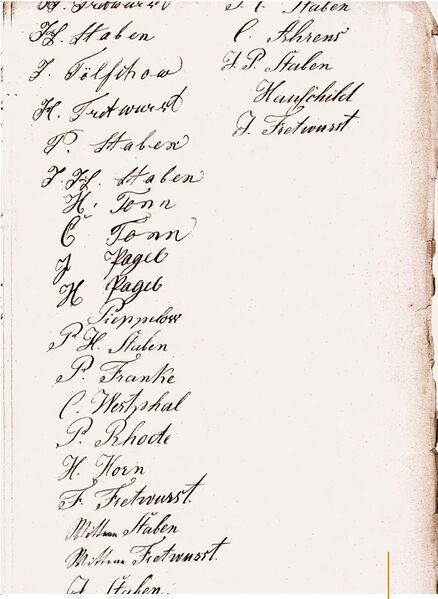 H. Staben
J. Tölschow
H. Fretwurst
P. Staben
J. H. Staben
H. Tonn
C Tonn
J Pagel
H Pagel
Pieppelow
P H. Staben
P. Franke
C. Westphal
P. Rhode
H. Horn
F. Fretwurst.
Staben
Fretwurst.
J. Staben.
Staben
C. Ahrens
J. P. Staben
Hauschild
J. Fretwurst